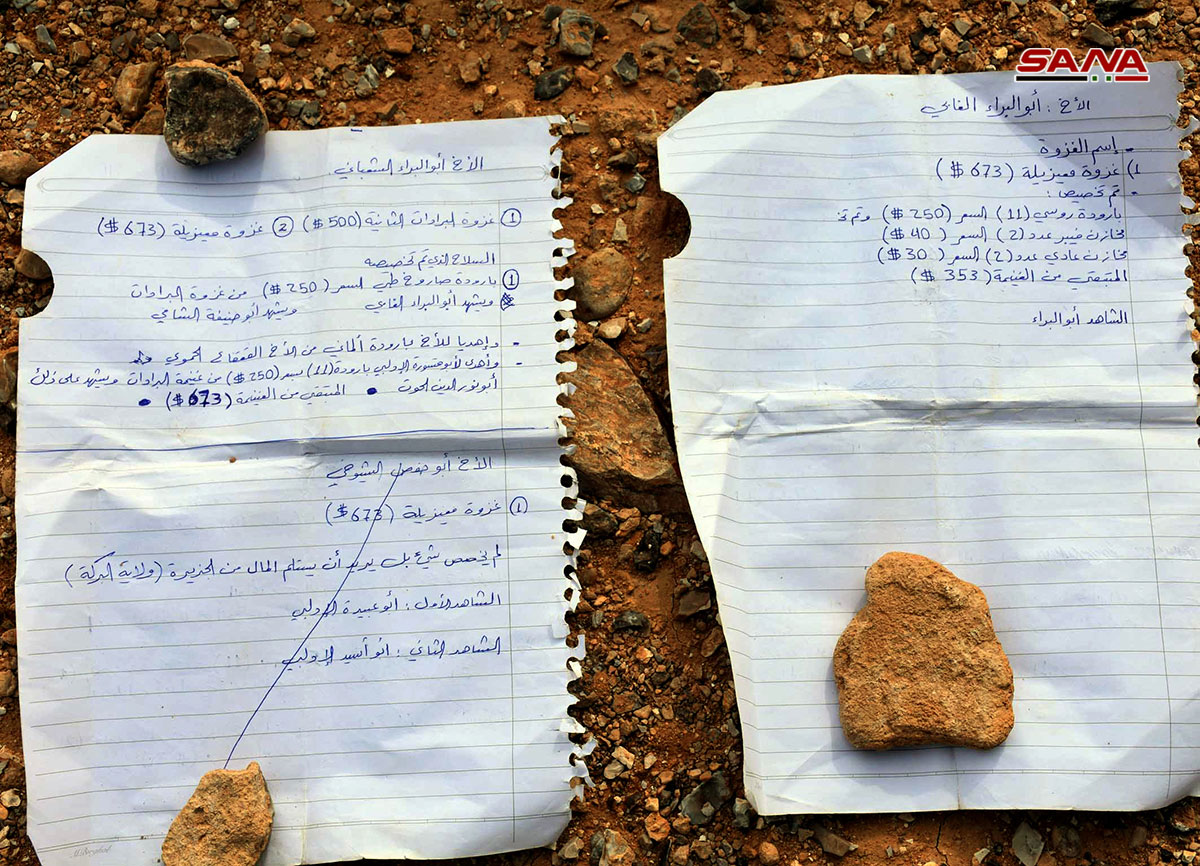 SANA
الأخ أبو البراء الشعباني
① غزوة البرادات الثانية (500 $) ② غزوة معيزيلة (673 $)
السلاح الذي تم تخصيصه
① بارودة صاروخ طي السعر (250 $) من غزوة البرادات
ويشهد أبو البراء الغابي ويشهد أبو حنيفة الشامي
- وإهديا للأخ بارودة ألماني من الأخ القعقاع الحموي
- وأهدى لأبو منصورة الإدلبي بارودة (11) بسعر (250 $) من غنيمة البرادات ويشهد على ذلك
أبو نور الدين الحوت • المتبقي من الغنيمة (673 $) •
الأخ أبو حفص الشيوخي
① غزوة معيزيلة (673 $)
لم يخصص شيئ بل يريد أن يستلم المال من الجزيرة (ولاية البركة)
الشاهد الأول : أبو عبيدة الإدلبي
الشاهد الثاني : أبو أسيد الإدلبي
الأخ : أبو البراء الغابي
- إسم الغزوة
1) غزوة معيزيلة (673 $)
- تم تخصيص :
بارودة روسي (11) السعر (250 $) وتم تخ
مخازن فيبر عدد (2) السعر (40 $)
مخازن عادي عدد (2) السعر (30 $)
المتبقي من الغنيمة (353 $)
الشاهد أبو البراء